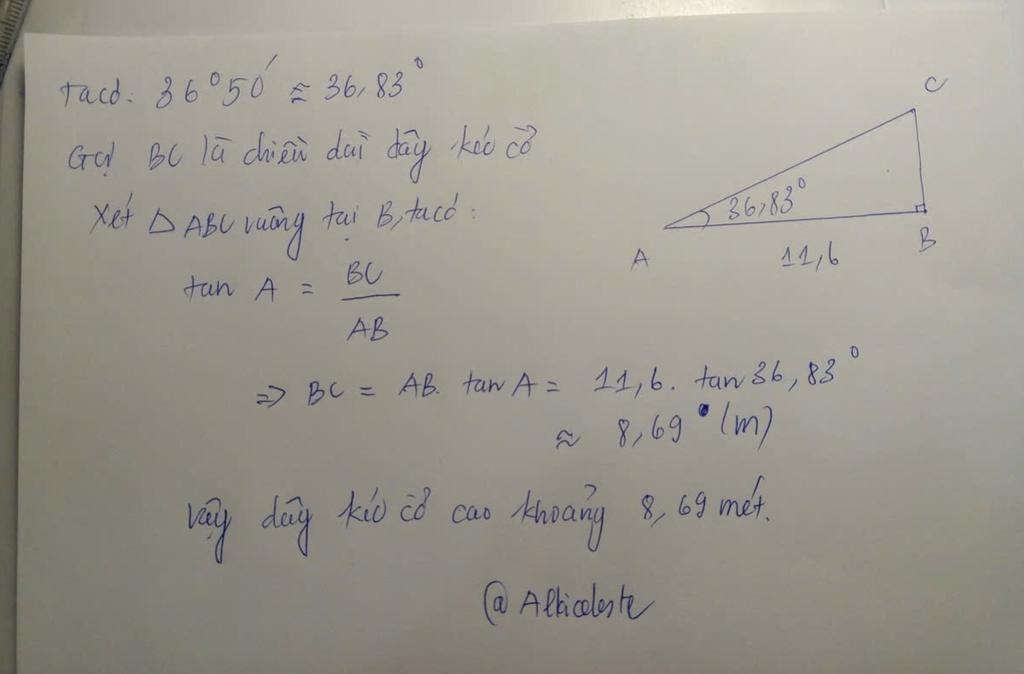 Ta có: 36°50' ≈ 36,83°
Gọi BC là chiều dài dây kéo cờ
Xét △ABC vuông tại B, ta có:
tan A = BC / AB
⇒ BC = AB. tan A = 11,6. tan 36,83°
≈ 8,69 (m)
Vậy dây kéo cờ cao khoảng 8,69 mét.
@ Albiceleste
C
36,83°
A
11,6
B